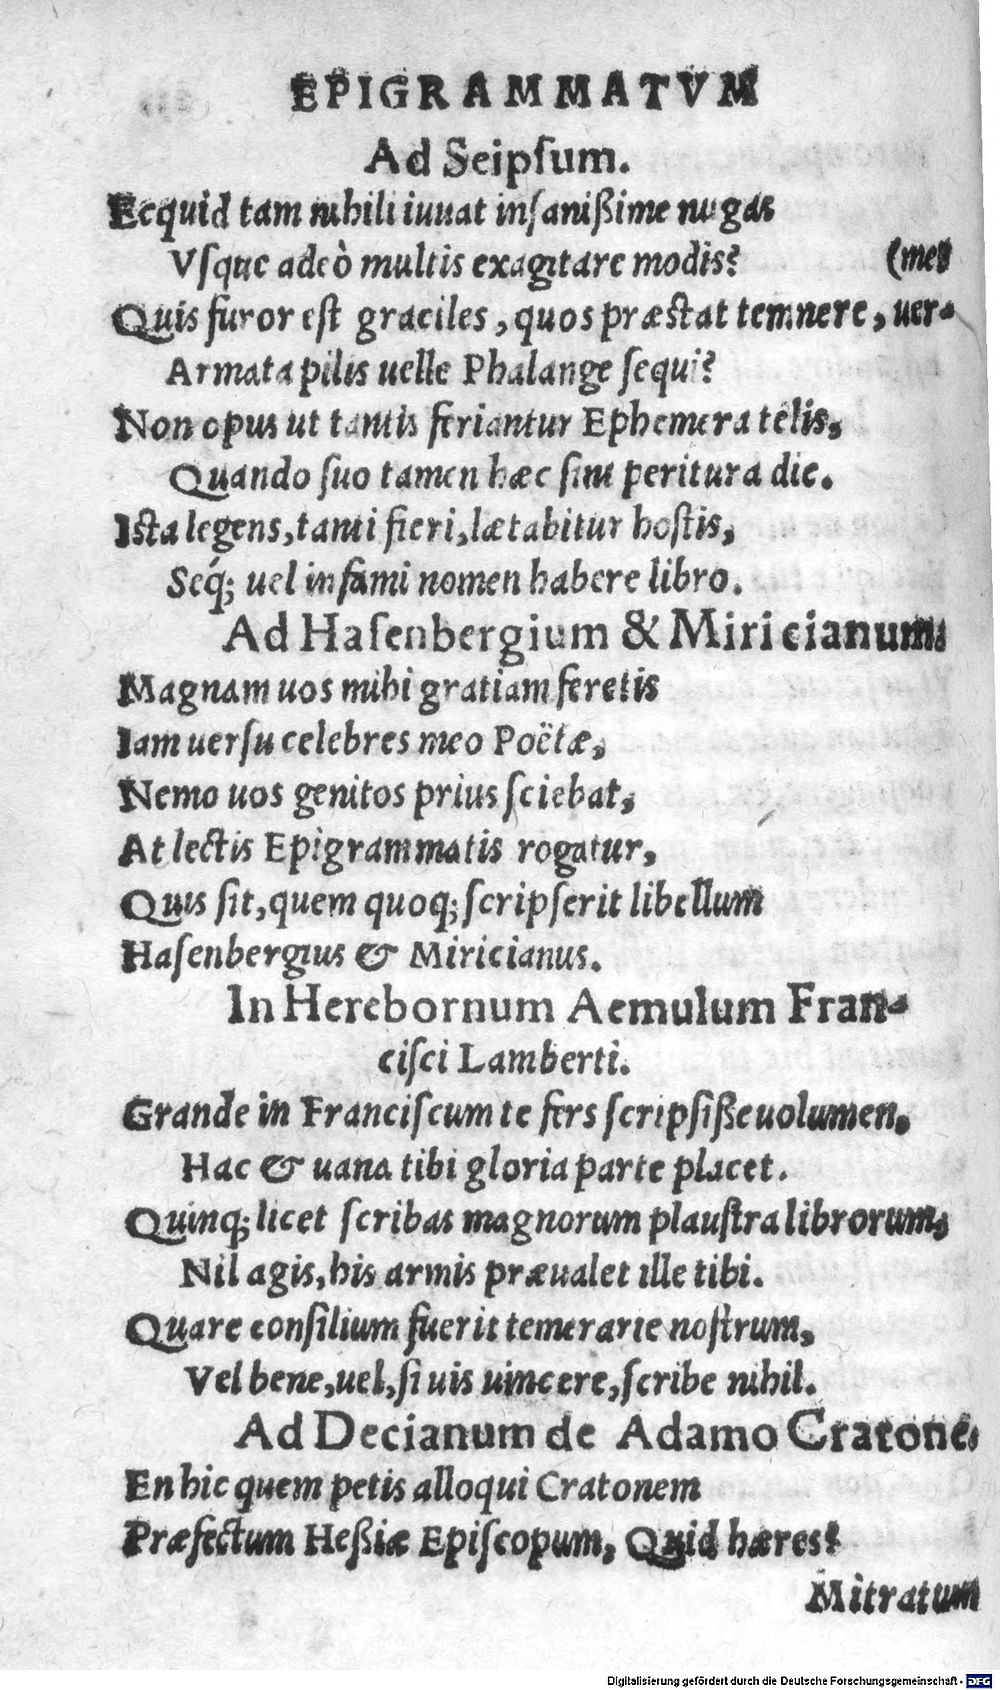 EPIGRAMMATVM
Ad Seipſum.
Ecquid tam nihili iuuat inſanißime nugas
Vſque adeò multis exagitare modis?
(mes
Quis furor eſt graciles, quos præſtat temnere, uer-
Armata pilis uelle Phalange ſequi?
Non opus ut tantis feriantur Ephemera telis,
Quando ſuo tamen hæc ſint peritura die.
Iſta legens, tanti fieri, lætabitur hoſtis,
Seq́; uel infami nomen habere libro.
Ad Haſenbergium & Miricianum.
Magnam uos mihi gratiam feretis
Iam uerſu celebres meo Poëtæ,
Nemo uos genitos prius ſciebat,
At lectis Epigrammatis rogatur,
Quis ſit, quem quoq; ſcripſerit libellum
Haſenbergius & Miricianus.
In Herebornum Aemulum Fran-
ciſci Lamberti.
Grande in Franciſcum te fers ſcripſiße uolumen,
Hac & uana tibi gloria parte placet.
Quinq; licet ſcribas magnorum plauſtra librorum,
Nil agis, his armis præualet ille tibi.
Quare conſilium fuerit temerarie noſtrum,
Vel bene, uel, ſi uis uincere, ſcribe nihil.
Ad Decianum de Adamo Cratone.
En hic quem petis alloqui Cratonem
Præfectum Heßiæ Epiſcopum, Quid hæres?
Mitratum
Digitalisierung gefördert durch die Deutsche Forschungsgemeinschaft - DFG